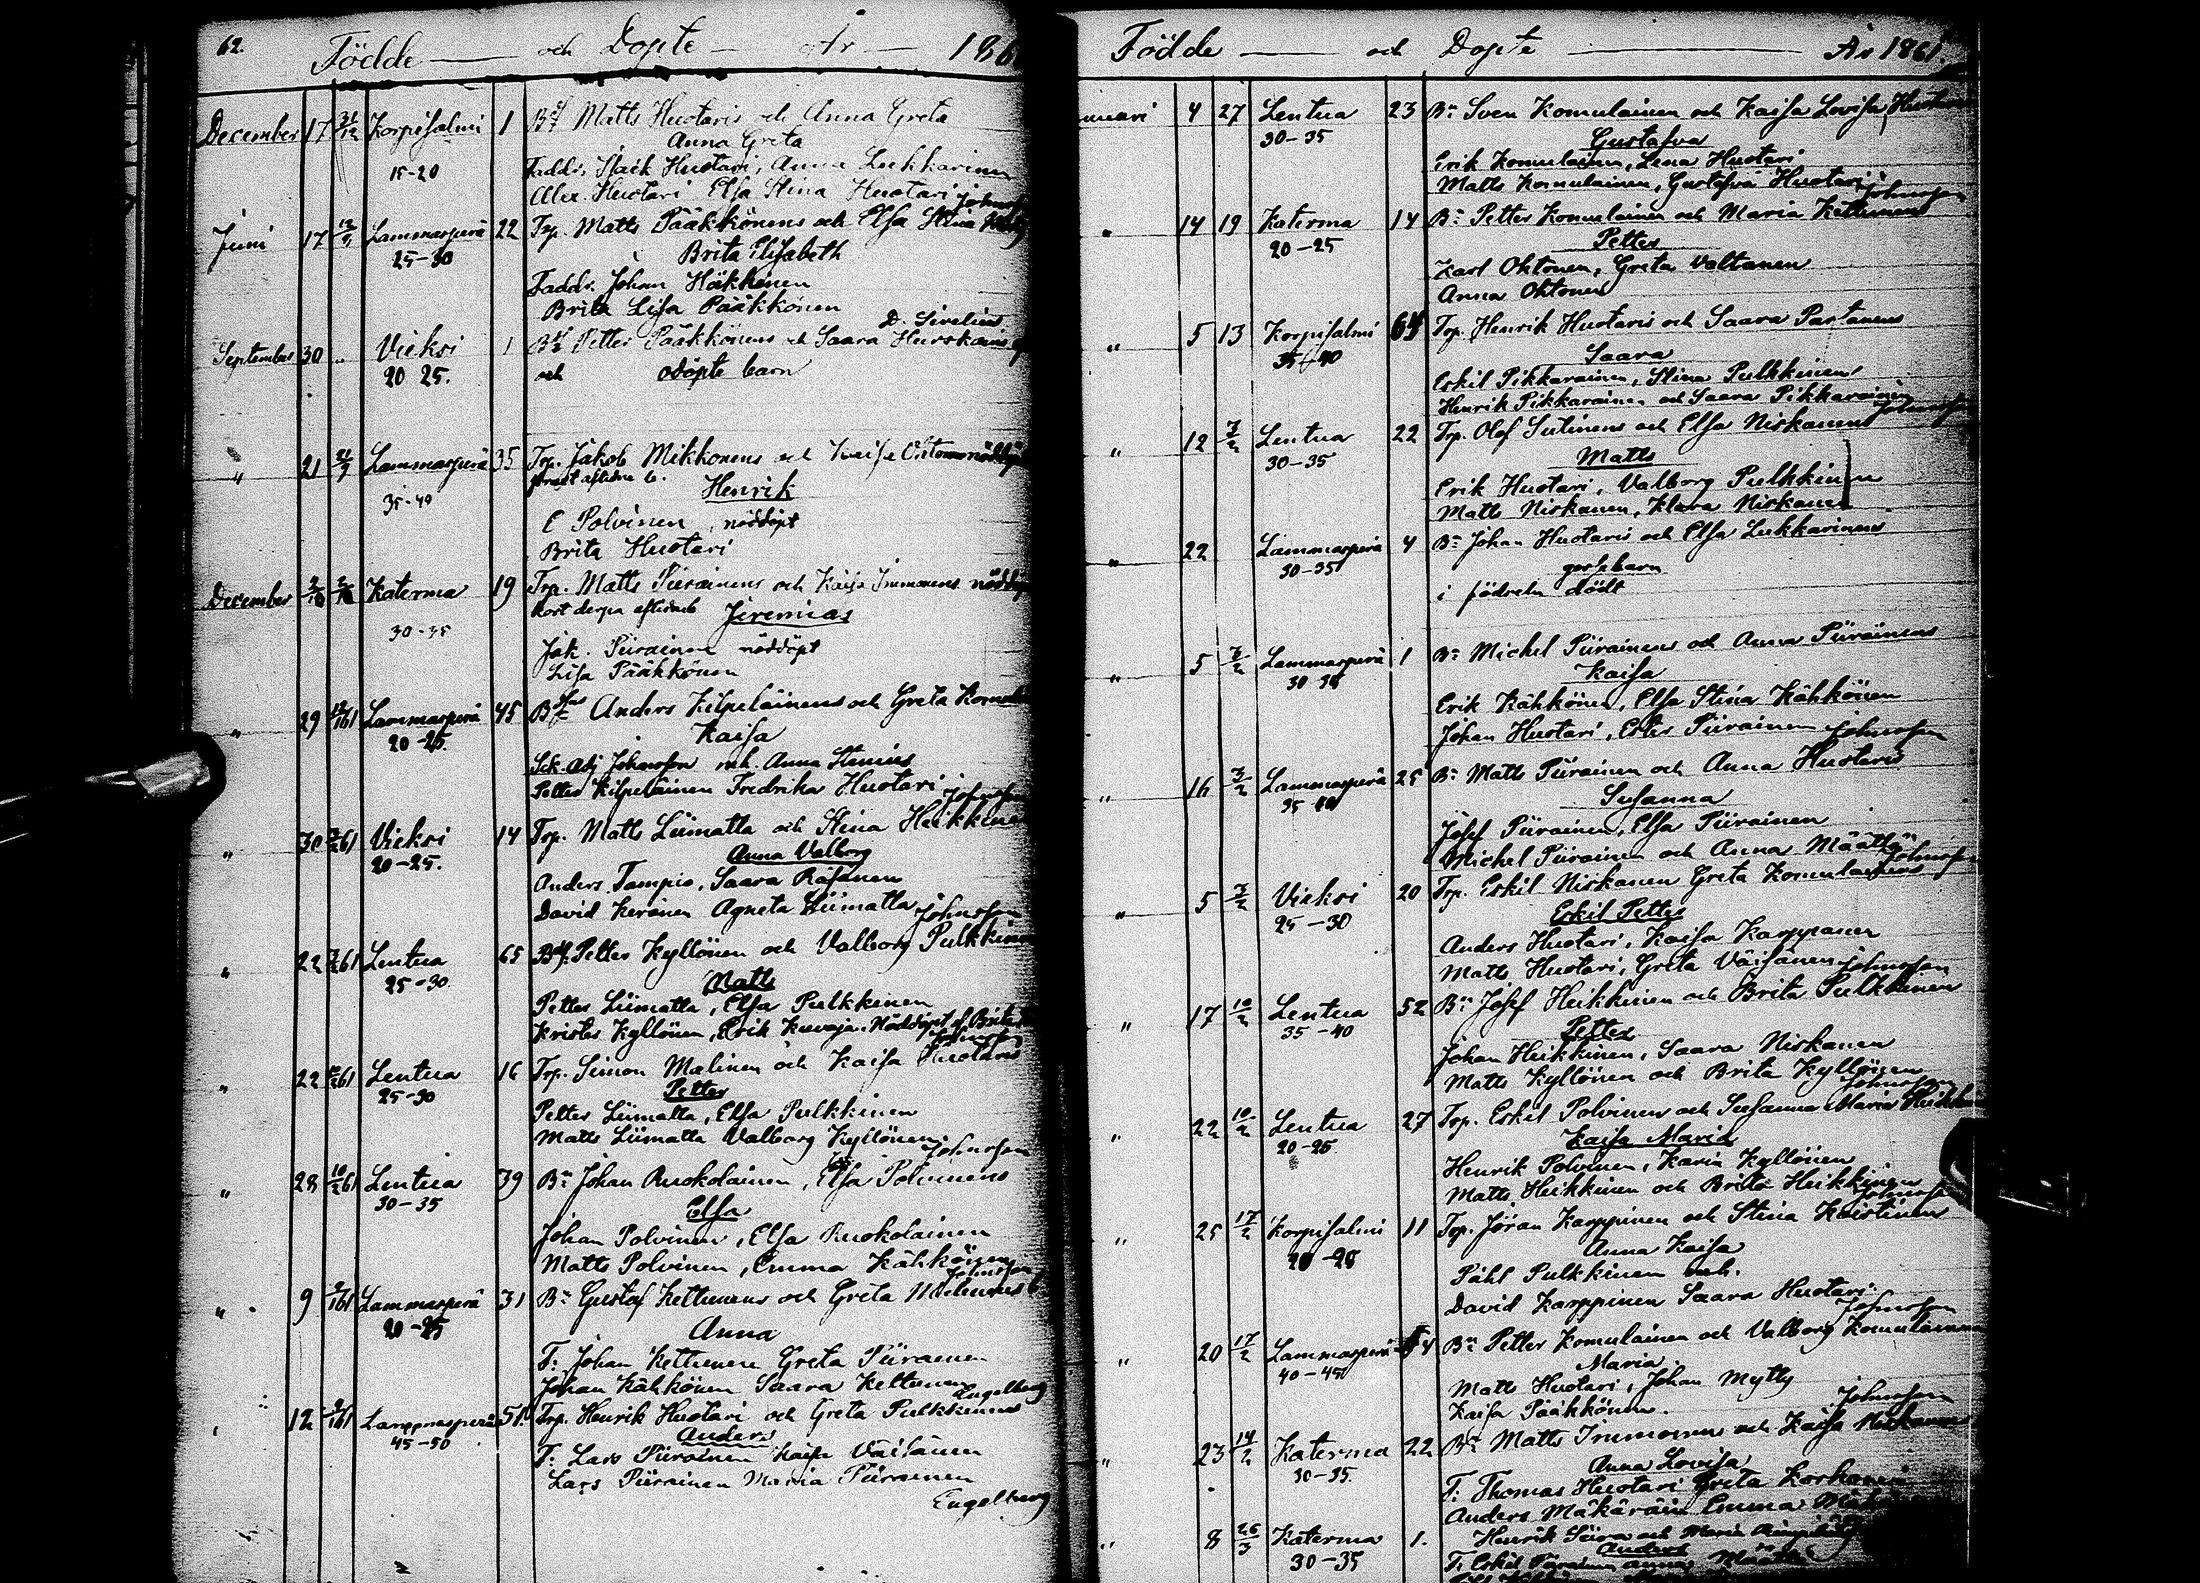 62.
Födde och Döpte År 186
December 17 31/12 Korpisalmi 1 Matts Huotaris och Anna Greta
Anna Greta
15-20 Faddr. Huotari, Anna Lukkarinen
Alex. Huotari Elsa Stina Huotari Johnsson
Juni 17 Lammasperä 22 Trp. Matts Pääkkönens och Elsa Stina
25-30 Brita Elisabeth
Faddr. Johan Häkkinen
Brita Lisa Pääkkönen
D. Sirelius
September 30 " Vieksi 1 Petter Pääkkönens och Saara
20 25. och odöpte barn
" 21 Lammasperä 35 Trp. Jakob Mikkonens och Kaisa Ohtonens
35-40 Henrik
E Polvinen, nöddöpt
Brita Huotari
December Katerma 19 Trp. Matts Piirainens och Kaisa Immonens
kort derpå Jeremias
30-35
Jak. Piirainen nöddöpt
Lisa Pääkkönen
" 29 Lammasperä 45 Anders Kilpeläinens och Greta
20-25. Kaisa
Sek. Adj Johnsson och Anna Stenius
Petter Kilpeläinen Fredrika Huotari Johnsson
" 30 Vieksi 14 Trp. Matts Liimatta och Stina Heikkinen
20-25. Anna Valborg
Anders Tampio, Saara Räisänen
David Keränen Agneta Liimatta Johnsson
" 22 Lentua 65 Petter Kyllönen och Valborg Pulkkinen
25-30. Matts
Petter Liimatta, Elsa Pulkkinen
Krister Kyllönen, Erik Kuvaja. Nöddöpt af Brita
Johnsson
" 22 Lentua 16 Trp. Simon Malinen och Kaisa Huotaris
25-30 Petter
Petter Liimatta, Elsa Pulkkinen
Matts Liimatta Valborg Kyllönen. Johnsson
" 28 10/2 61 Lentua 39 Bn Johan Ruokolainen, Elsa Polvinens
30-35 Elsa
Johan Polvinen, Elsa Ruokolainen
Matts Polvinen, Emma Kähkönen
Johnsson
" 9 Lammasperä 31 Bn Gustaf Kettunens och Greta
20-25 Anna
F: Johan Kettunen Greta Piirainen
Johan Kähkönen Saara Kettunen
Engelberg
12 Lammasperä 51. Trp. Henrik Huotari och Greta Pulkkinens
45-50 Anders
F: Lars Piirainen Kaisa Väisänen
Lars Piirainen Maria Piirainen
Engelberg
Födde och Döpte År 1861.
nuari 4 27 Lentua 23 Bn Sven Komulainen och Kaisa Lovisa Huotari
30-35 Gustafva
Erik Komulainen, Lena Huotari
Matts Komulainen, Gustafva Huotari Johnsson
" 14 19 Katerma 14 Bn Petter Komulainen och Maria Kettunens
20-25 Petter
Karl Ohtonen, Greta Valtanen
Anna Ohtonen
" 5 13 Korpisalmi Trp. Henrik Huotaris och Saara Partanens
35-40 Saara
Eskil Pikkarainen, Stina Pulkkinen
Henrik Pikkarainen och Saara Pikkarainen
Johnsson
" 12 Lentua 22 Trp. Olof Sutinens och Elsa Niskanens
30-35 Matts
Erik Huotari, Valborg Pulkkinen
Matts Niskanen, Klara Niskanen
" 22 Lammasperä 4 Bn Johan Huotaris och Elsa Lukkarinens
30-35 gossebarn
i födseln dödt
" 5 Lammasperä 1 Bn Michel Piirainens och Anna Piirainens
Kaisa
Erik Kähkönen, Elsa Stina Kähkönen
Johan Huotari, Ester Piirainen Johnsson
" 16 3/2 Lammasperä 25 Bn Matts Piirainen och Anna Huotaris
Susanna
Josef Piirainen, Elsa Piirainen
Michel Piirainen och Anna Määttä
Johnsson
" 5 Vieksi 20 Trp. Eskil Niskanen Greta Komulainens
25-30 Eskil Petter
Anders Huotari, Kaisa Karppanen
Matts Huotari, Greta Väisänen Johnsson
" 17 10/2 Lentua 52 Bn Josef Heikkinen och Brita Pulkkinen
35-40 Petter
Johan Heikkinen, Saara Niskanen
Matts Kyllönen och Brita Kyllönen
Johnsson
" 22 10/2 Lentua 27 Trp. Eskil Polvinens och Susanna Maria
20-25 Kaisa Maria
Henrik Polvinen, Karin Kyllönen
Matts Heikkinen och Brita Heikkinen
Johnsson
" 25 17/2 Korpisalmi 11 Trp. Jöran Karppinen och Stina
Anna Kaisa
Påhl Pulkkinen och.
David Karppinen Saara Huotari.
Johnsson
" 20 17/2 Lammasperä Bn Petter Komulainen och Valborg Komulainen
40-45 Maria
Matts Huotari, Johan Mytty
Kaisa Pääkkönen. Johnsson
" 23 14/2 Katerma 22 Bn Matts Immonens och Kaisa
30-35. Anna Lovisa
F: Thomas Huotari Greta Korhonen
Anders Mäkäräin Emma
" 8 26/3 Katerma 1. Henrik Piira och Maria
30-35 Anders
F. Eskil Anna